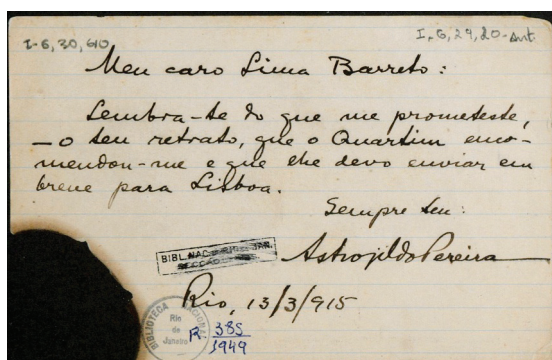 I-6,30,610
I, 6, 29, 20 - Ant.
Meu caro Lima Barreto:
Lembra-te do que me prometeste,
— o teu retrato, que o Quartim enco-
mendou-me e que lhe devo enviar em
breve para Lisboa.
Sempre teu:
Astrojildo Pereira
BIBL. NAC. RIO JAN.
SECÇÃO
Rio, 13/3/915
BIBLIOTECA NACIONAL
Rio
de
Janeiro
R 385
1949